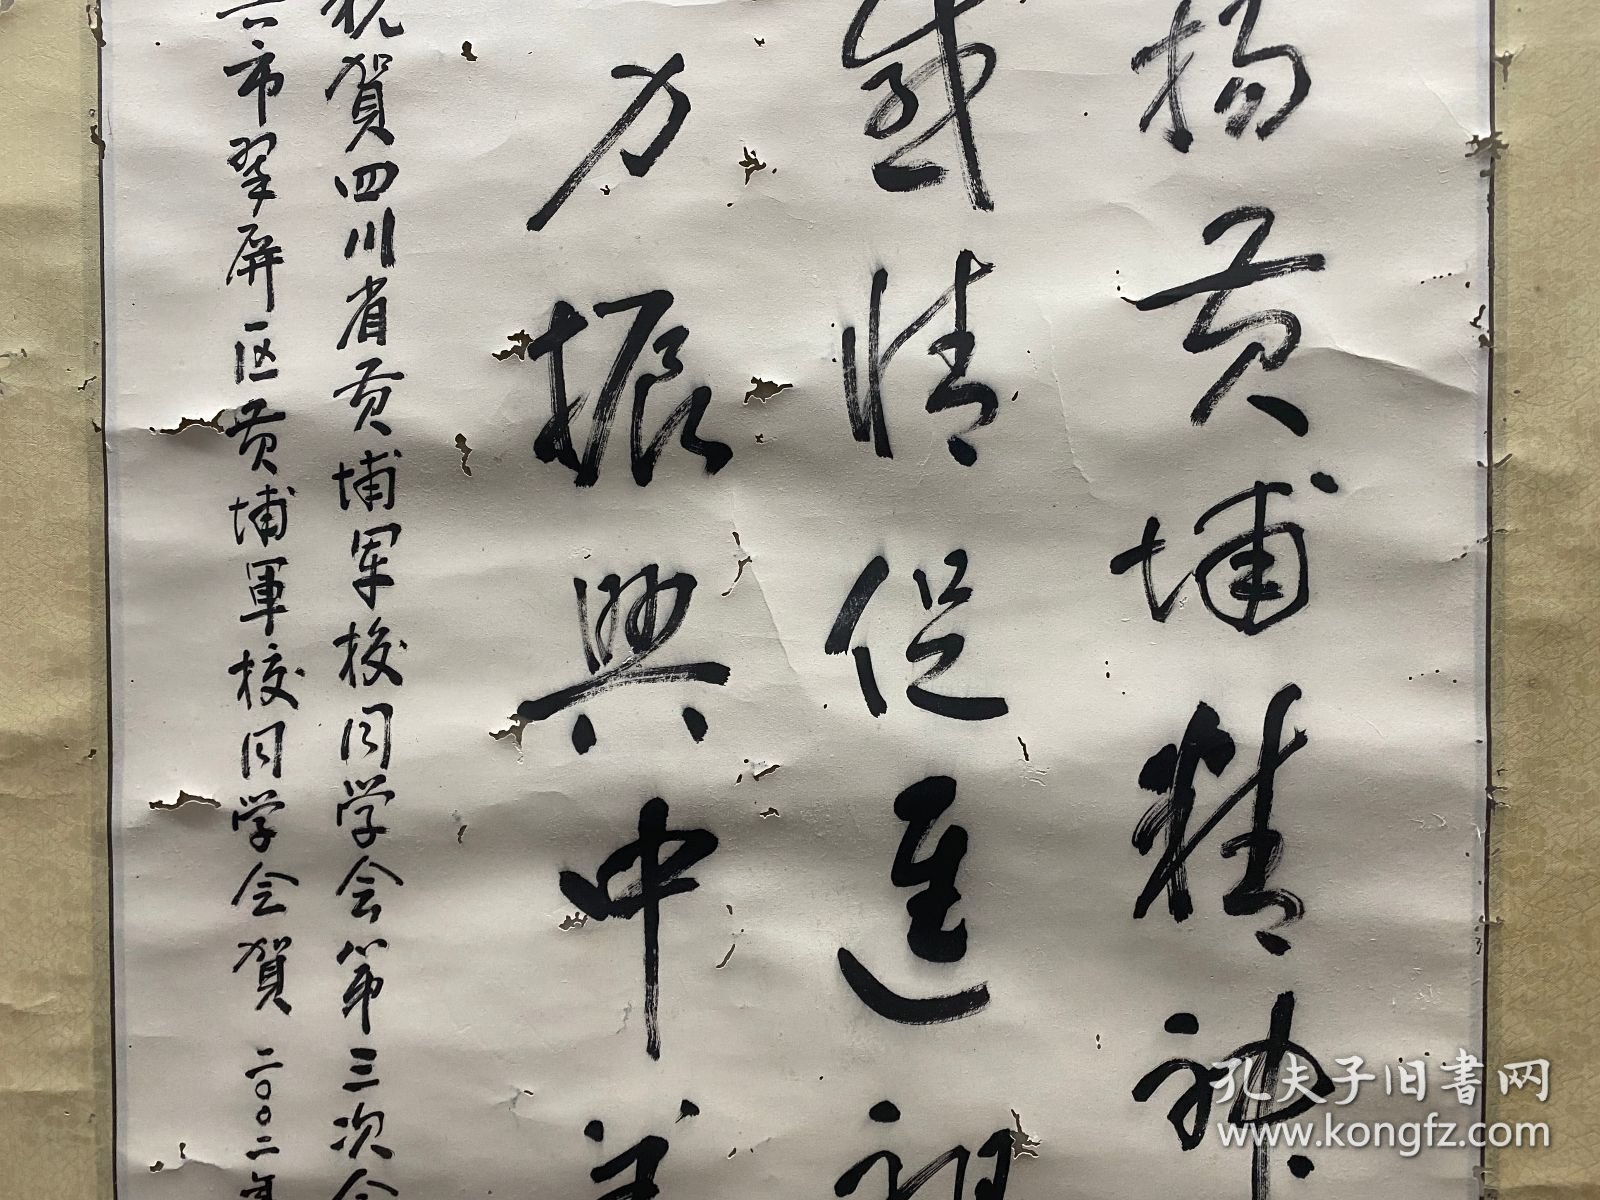 扬黄埔精神
感情促进祖
力振兴中华
祝贺四川省黄埔军校同学会第三次会
市翠屏区黄埔軍校同学会賀 二〇〇二年
孔夫子旧书网
www.kongfz.com